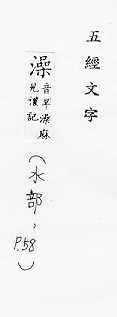 五經文字
澡音早澡麻
見禮記
（水部，
P.58）